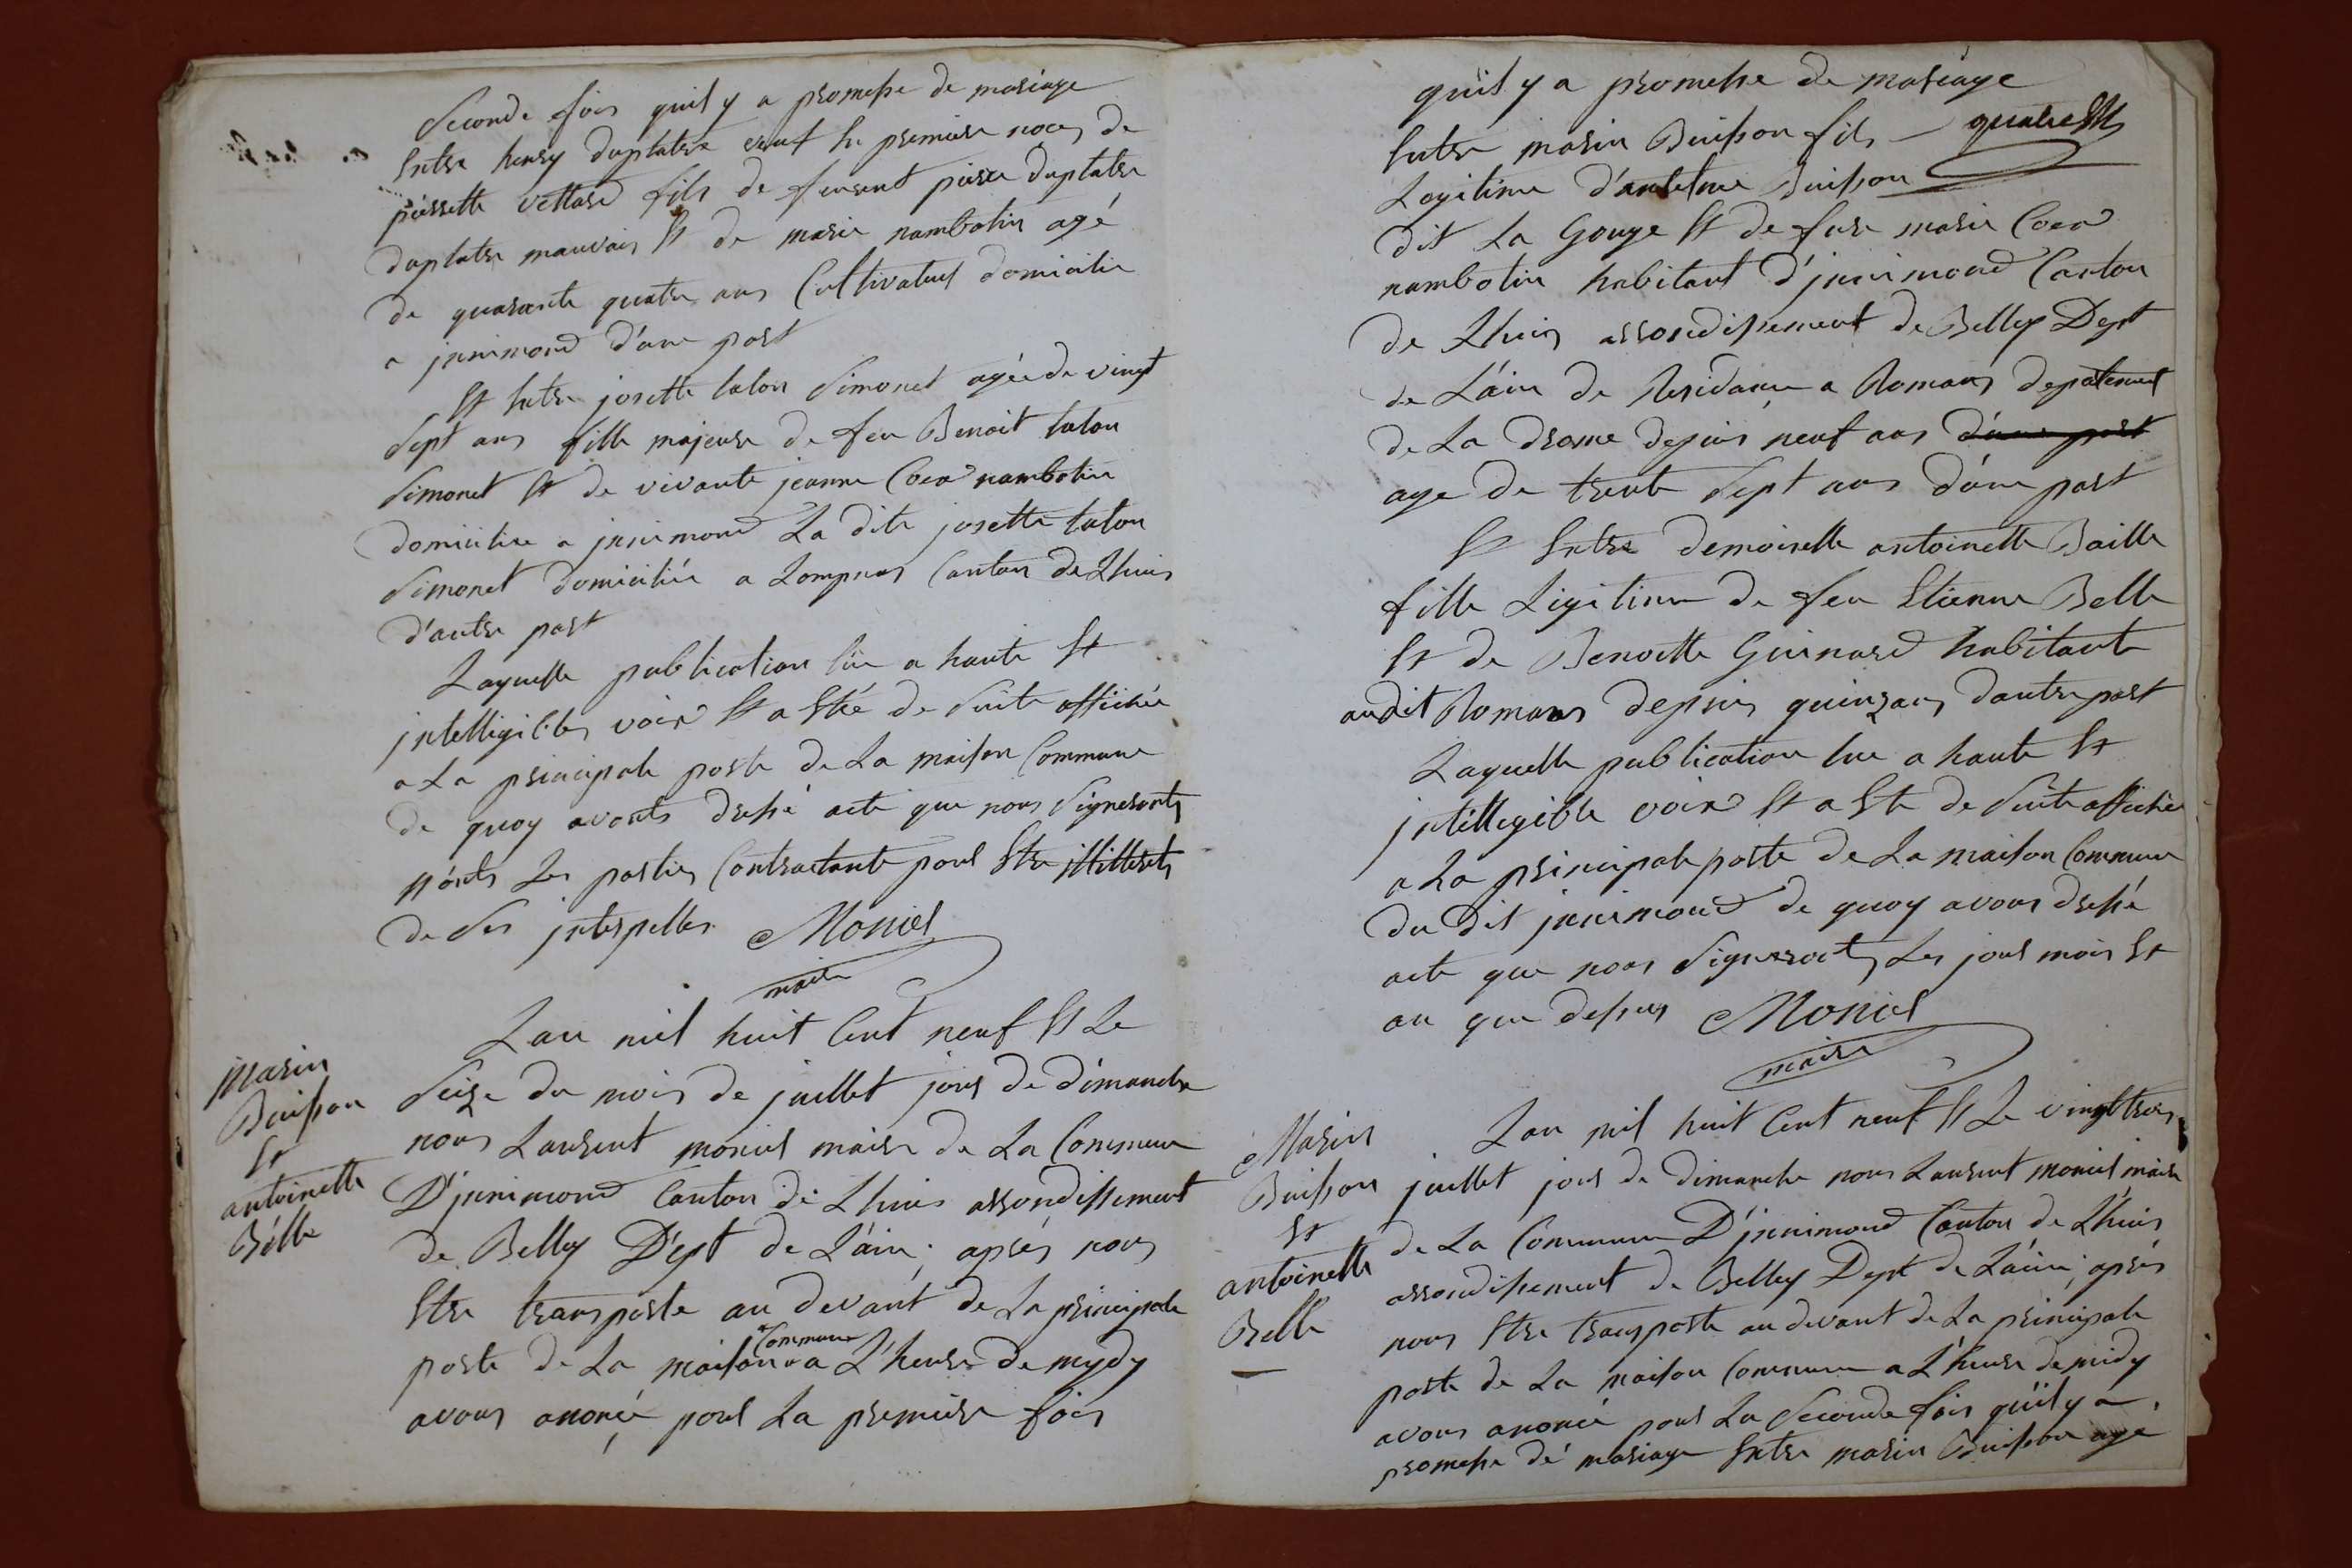 Seconde fois quil y a promesse de mariage
Entre henry duplatre veuf En premiere noces de
pierrette vettard fils de feu pierre duplatre
duplatre mauvais Et de marie nambotin agé
de quarante quatre ans Cultivateur domicilié
a jnnimond d'une part
Et Entre josette talon Simonet agée de vingt
Sept ans fille majeure de feu Benoit talon
Simonet Et de vivante jeanne Coca nambotin
domiciliee a jnnimond La dite josette talon
Simonet domiciliée a Lompnas Canton de Lhuis
d'autre part
Laquelle publication lüe a haute Et
jntelligibles voix Et a Eté de Suite affichée
a La principale porte de La maison Commune
de quoy avonts dressé acte que nous Signeronts
nonts Les parties Contractante pour Etre jllitterets
de Ses jnterpelles Moniel
maire
Marin
Buisson
Et
antoinette
Bélle
Lan mil huit Cent neuf Et Le
Seize du mois de juillet jour de dimanche
nous Laurent moniel maire de La Commune
D'jnnimond Canton de Lhuis arrondissement
de Belley D'ept de L'ain; aprés nous
Etre transporte au devant de La principale
porte de La maison Commune a L'heure de mydy
avons anoncé pour La premiere fois
quil y a promesse de mariage
Entre marin Buisson fils - quatre Et
Legitime d'antelme Buisson
dit La Gouge Et de feue marie Coca
nambotin habitant d'jnnimond Canton
de Lhuis arrondissement de Belley Dept
de L'ain de Residance a Romans depatement
de La drome depuis neuf ans d'une part
age de trente Sept ans d'une part
Et Entre demoiselle antoinette Baille
fille Ligitime de feu Etienne Belle
Et de Benoitte Guinard habitante
audit Romans depuis quinzans dautre part
Laquelle publication lue a haute Et
jntelligible voix Et a Ete de Suite affichée
a La principale porte de La maison Commune
du dit jnnimond de quoy avons dressé
acte que nous Signeronts Les jour mois Et
an que dessus Moniel
maire
Marin
Buisson
Et
antoinette
Belle
Lan mil huit Cent neuf Et Le vingt trois
juillet jour de dimanche nous Laurent moniel maire
de La Commune D'jnnimond Canton de Lhuis
arrondissement de Belley Dept de L'ain; aprés
nous Etre transporte au devant de La principale
porte de La maison Commune a L'heure de midy
avons anoncé pour La Seconde fois qu'il y a
promesse dé mariage Entre marin Buisson agé